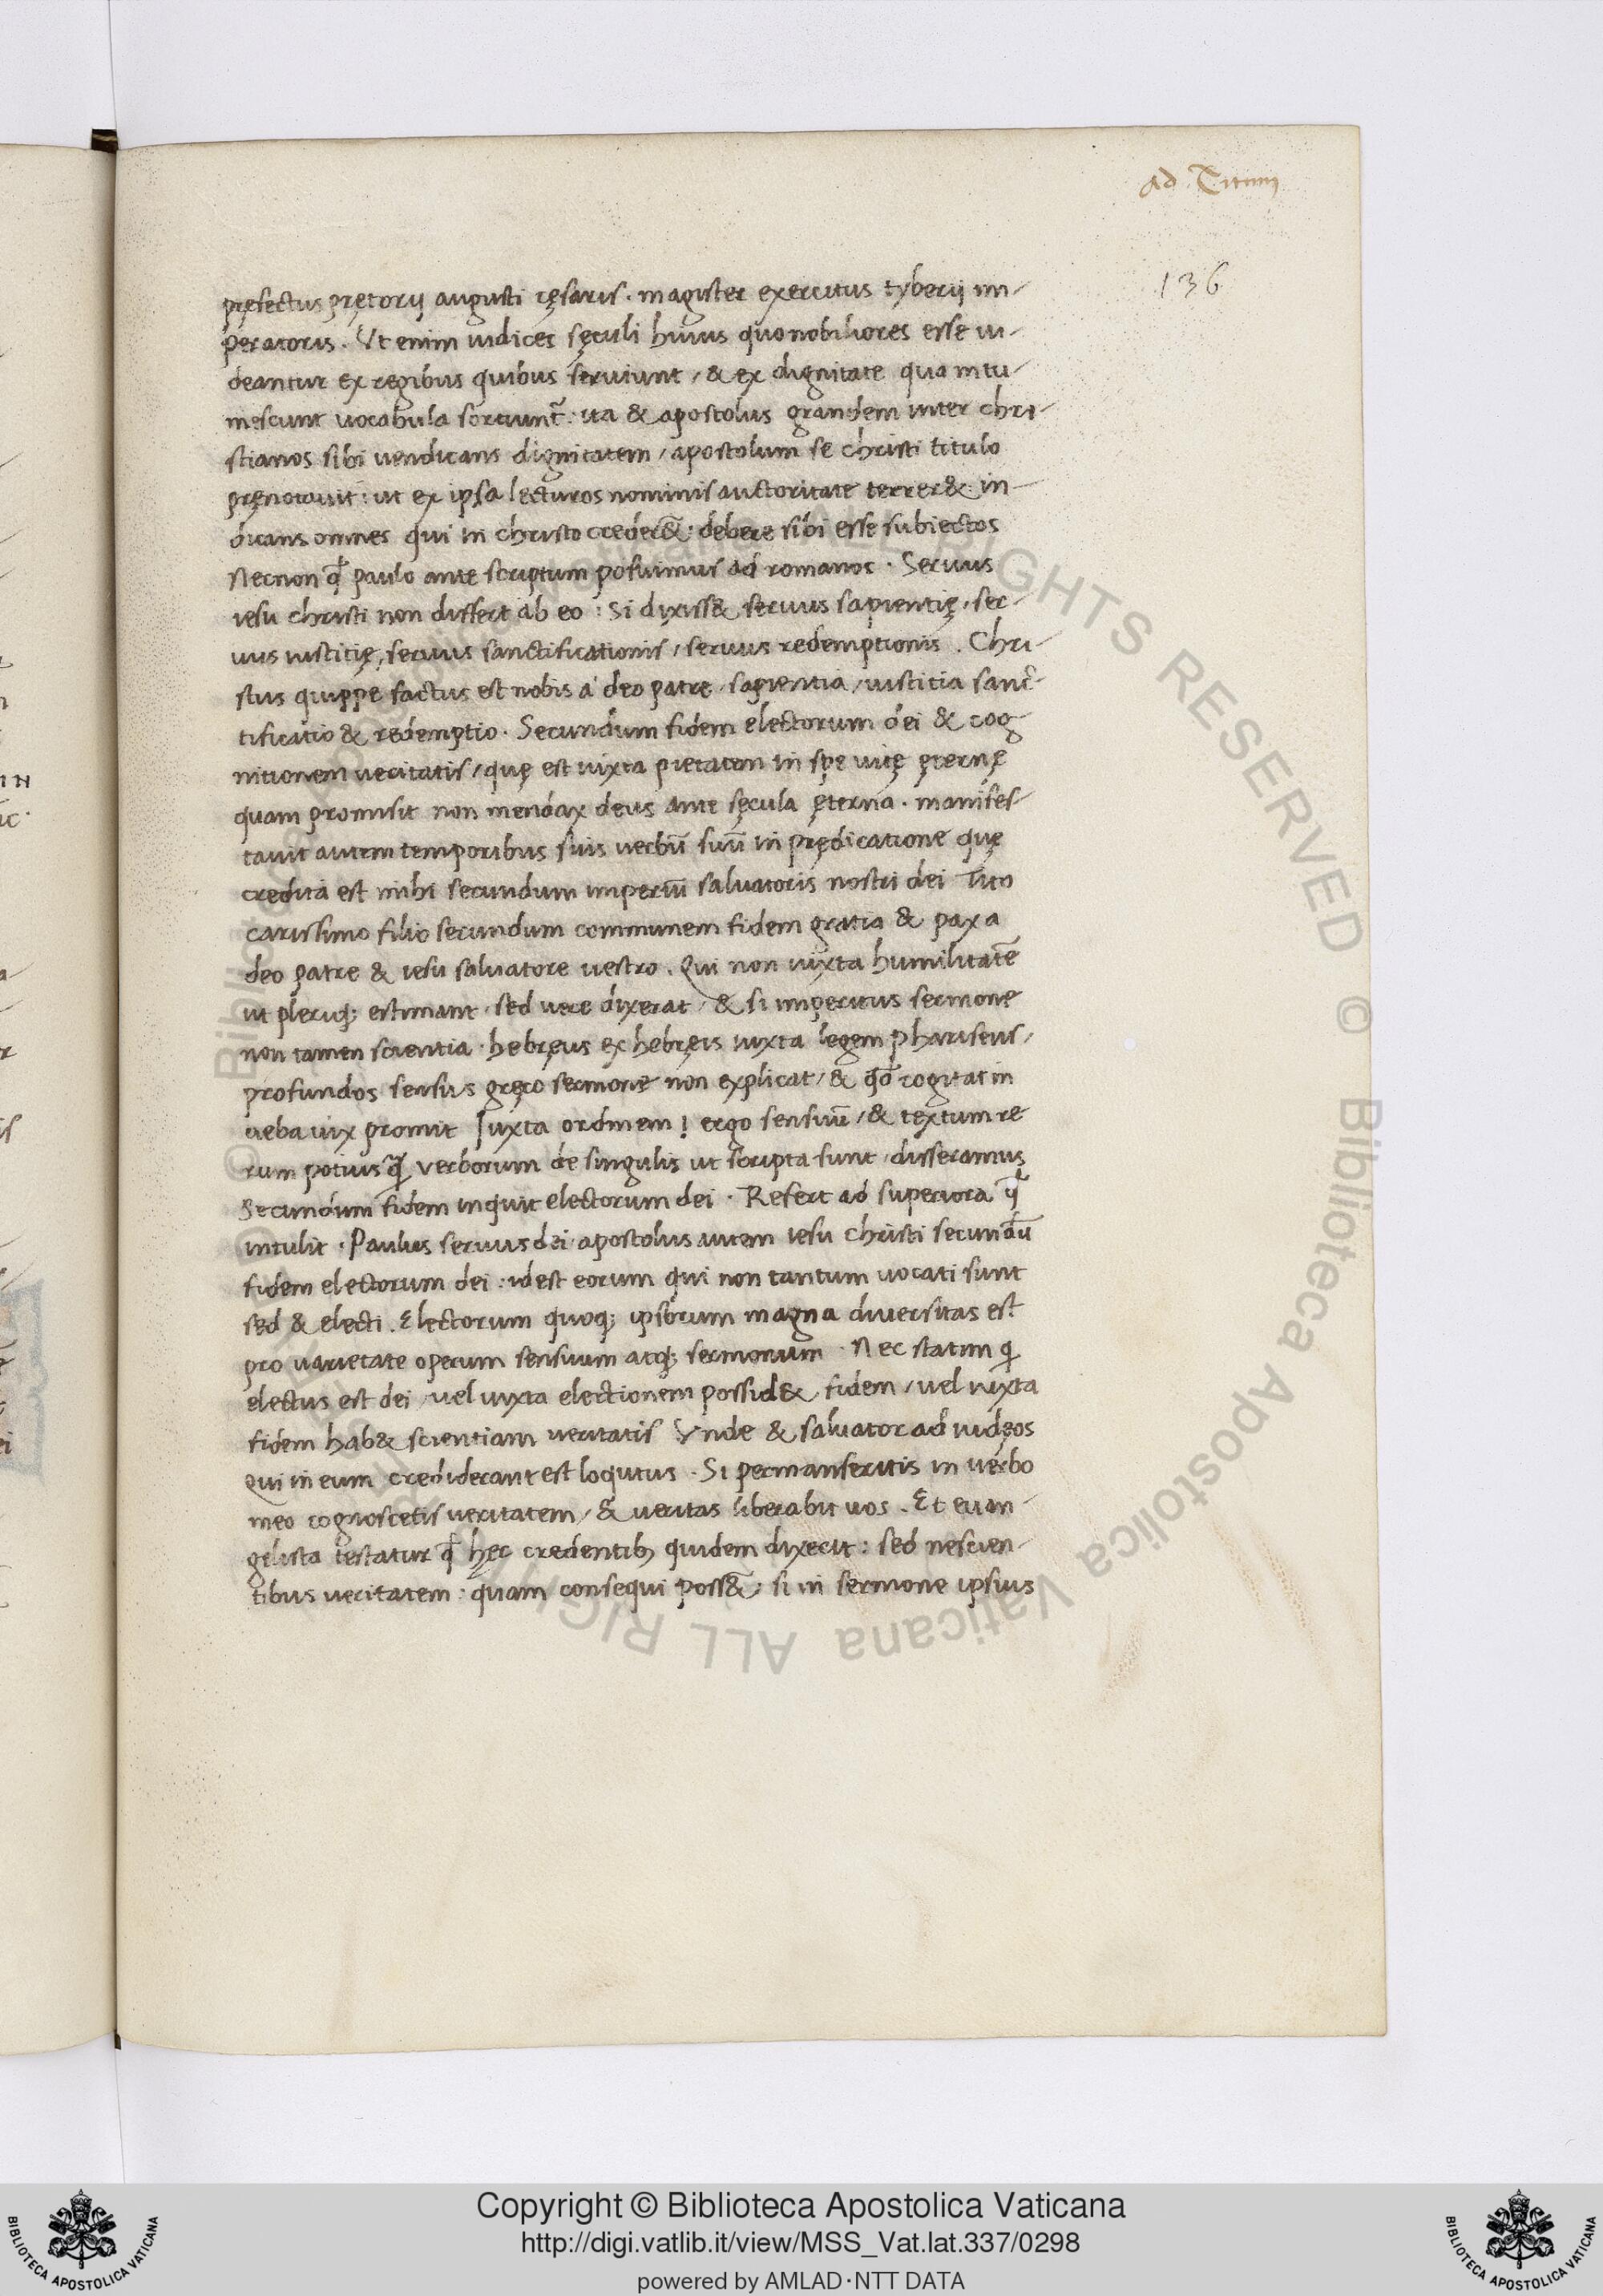 ad Titum
136
pręfectus prętorij augusti cęsaris. magister exercitus tyberij im-
peratoris. Ut enim iudices sęculi huius quo nobiliores esse ui-
deantur ex regibus quibus seruiunt / & ex dignitate qua intu-
mescunt uocabula sortiunt̃: ita & apostolus grandem inter chri-
stianos sibi uendicans dignitatem / apostolum se christi titulo
pręnotauit: ut ex ipsa lecturos nominis auctoritate terrer&: in-
dicans omnes qui in christo creder&̃: debere sibi esse subiectos
Necnon ꝙ paulo ante scriptum posuimus ad romanos. Seruus
iesu christi non differt ab eo: si dixiss& seruus sapientię, ser-
uus iustitię, seruus sanctificationis / seruus redemptionis. Chri-
stus quippe factus est nobis a deo patre / sapientia / iustitia sanc-
tificatio & redemptio. Secundum fidem electorum dei & cog-
nitionem ueritatis / quę est iuxta pietatem in spe uitę ęternę
quam promisit non mendax deus ante sęcula ęterna. manifes-
tauit autem temporibus suis uerbũ suũ in prędicatione quę
credita est mihi secundum imperiũ saluatoris nostri dei Tito
carissimo filio secundum communem fidem gratia & pax a
deo patre & iesu saluatore uestro. Qui non iuxta humilitatẽ
ut pleriq; estimant / sed uere dixerat / & si imperitus sermone
non tamen scientia. hebręus ex hebręis iuxta legem phariseus /
profundos sensus gręco sermone non explicat / & qđ cogitat in
ueba uix promit Iuxta ordinem! ergo sensuũ / & textum re
rum potius q̃ verborum de singulis ut scripta sunt / disseramus
Secundum fidem inquit electorum dei. Refert ad superiora q̃
intulit. Paulus seruus dei / apostolus autem iesu christi secundũ
fidem electorum dei: idest eorum qui non tantum uocati sunt
sed & electi. Electorum quoq; ipsorum magna diuersitas est
pro uarietate operum sensuum atq; sermonum. Nec statim q
electus est dei / uel iuxta electionem possid& fidem / uel iuxta
fidem hab& scientiam ueritatis Vnde & saluator ad iudęos
Qui in eum crediderant est loqutus. Si permanseritis in uerbo
meo cognoscetis ueritatem / & ueritas liberabit uos. Et euan-
gelista testatur ꝙ hęc credentib; quidem dixerit: sed nescien-
tibus ueritatem: quam consequi poss&̃; si in sermone ipsius
Copyright © Biblioteca Apostolica Vaticana
http://digi.vatlib.it/view/MSS_Vat.lat.337/0298
powered by AMLAD·NTT DATA